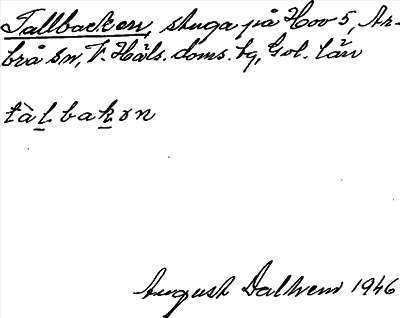 Tallbacken, stuga på Hov 5, Ar-
brå sn, V. Häls. doms. bg, Gvl. län
tàḻbaḵən
August Dalhem 1946